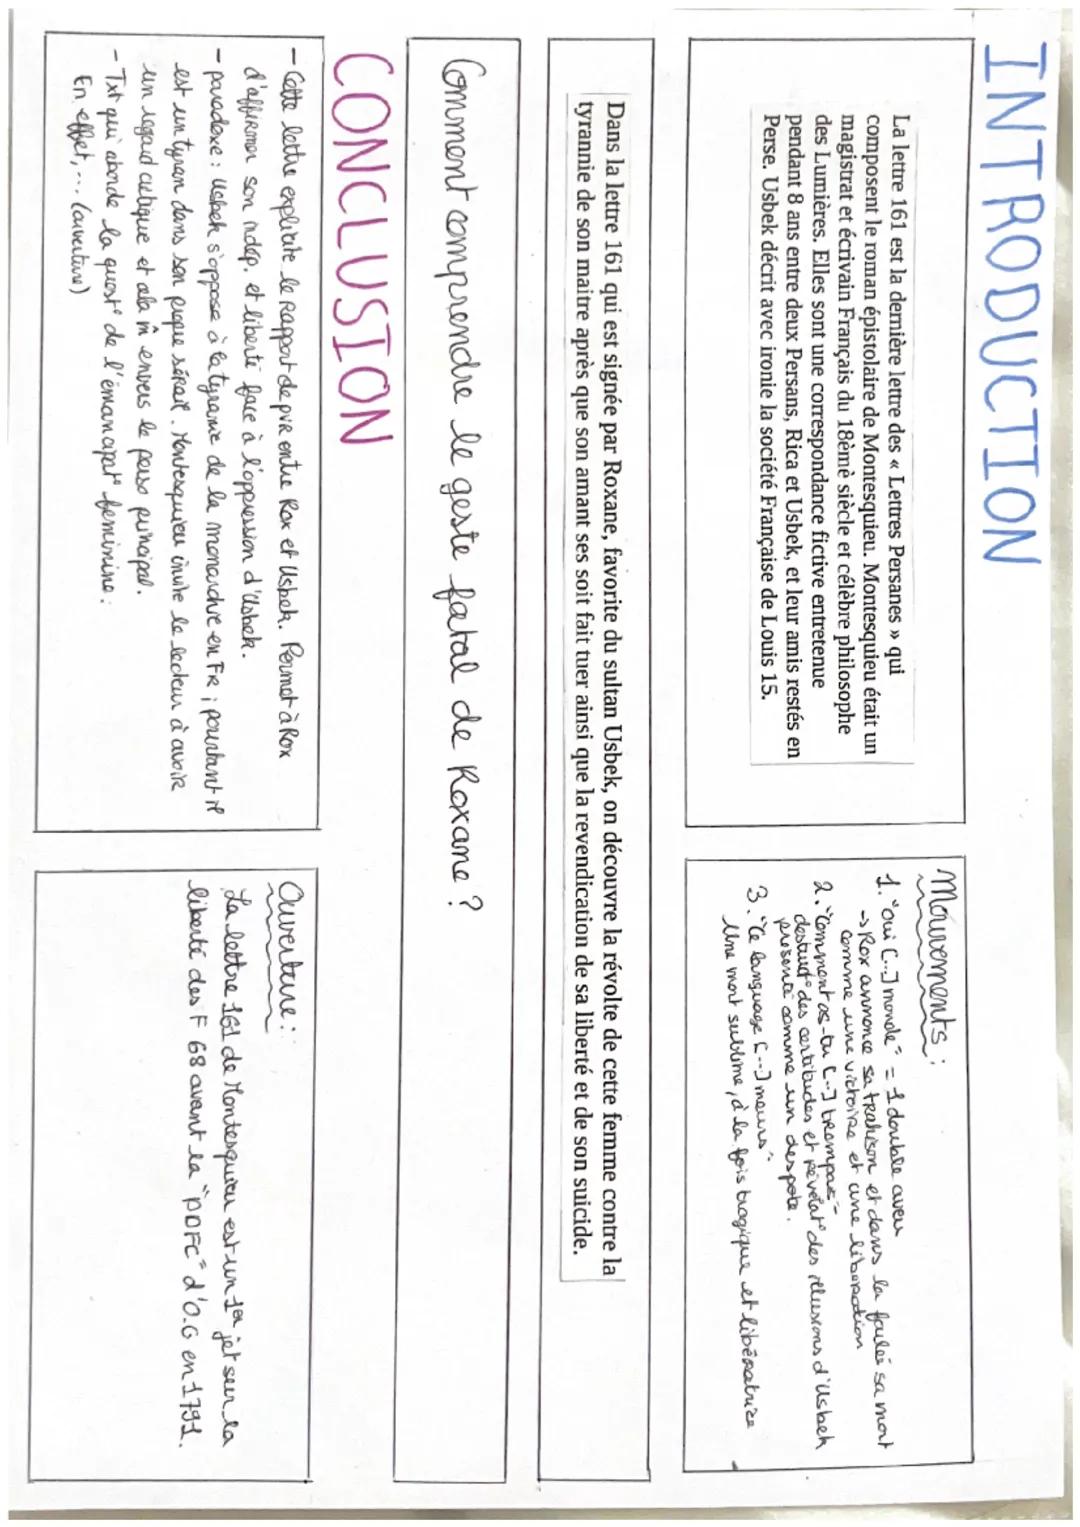 INTRODUCTION
La lettre 161 est la dernière lettre des « Lettres Persanes » qui
composent le roman épistolaire de Montesquieu. Montesquieu était un
magistrat et écrivain Français du 18èmè siècle et célèbre philosophe
des Lumières. Elles sont une correspondance fictive entretenue
pendant 8 ans entre deux Persans, Rica et Usbek, et leur amis restés en
Perse. Usbek décrit avec ironie la société Française de Louis 15.
Mouvements :
1. "Oui [...] monde" = 1 double aveu
→ Rox annonce sa trahison et dans la foulée sa mort
comme une victoire et une libération
2. "Comment as-tu [...] trompais"
destruct° des certitudes et révélat° des illusions d'Usbek
présenté comme un despote.
3. "Ce language [...] meurs".
Une mort sublime, à la fois tragique et libératrice
Dans la lettre 161 qui est signée par Roxane, favorite du sultan Usbek, on découvre la révolte de cette femme contre la
tyrannie de son maitre après que son amant ses soit fait tuer ainsi que la revendication de sa liberté et de son suicide.
Comment comprendre le geste fatal de Roxane ?
CONCLUSION
- Cette lettre explicite le rapport de pvr entre Rox et Usbek. Permet à Rox
d'affirmer son indép. et liberté face à l'oppression d'Usbek.
- paradoxe : Usbek s'oppose à la tyrannie de la monarchie en FR ; pourtant il
est un tyran dans son propre sérail. Montesquieu invite le lecteur à avoir
un regard critique et cela m̂ envers le perso principal.
- Txt qui aborde la quest° de l'émancipat° féminine.
En effet, ... (ouverture)
Ouverture :
La lettre 161 de Montesquieu est un 1er jet sur la
liberté des F 68 avant la "DDFC" d'O.G en 1791.